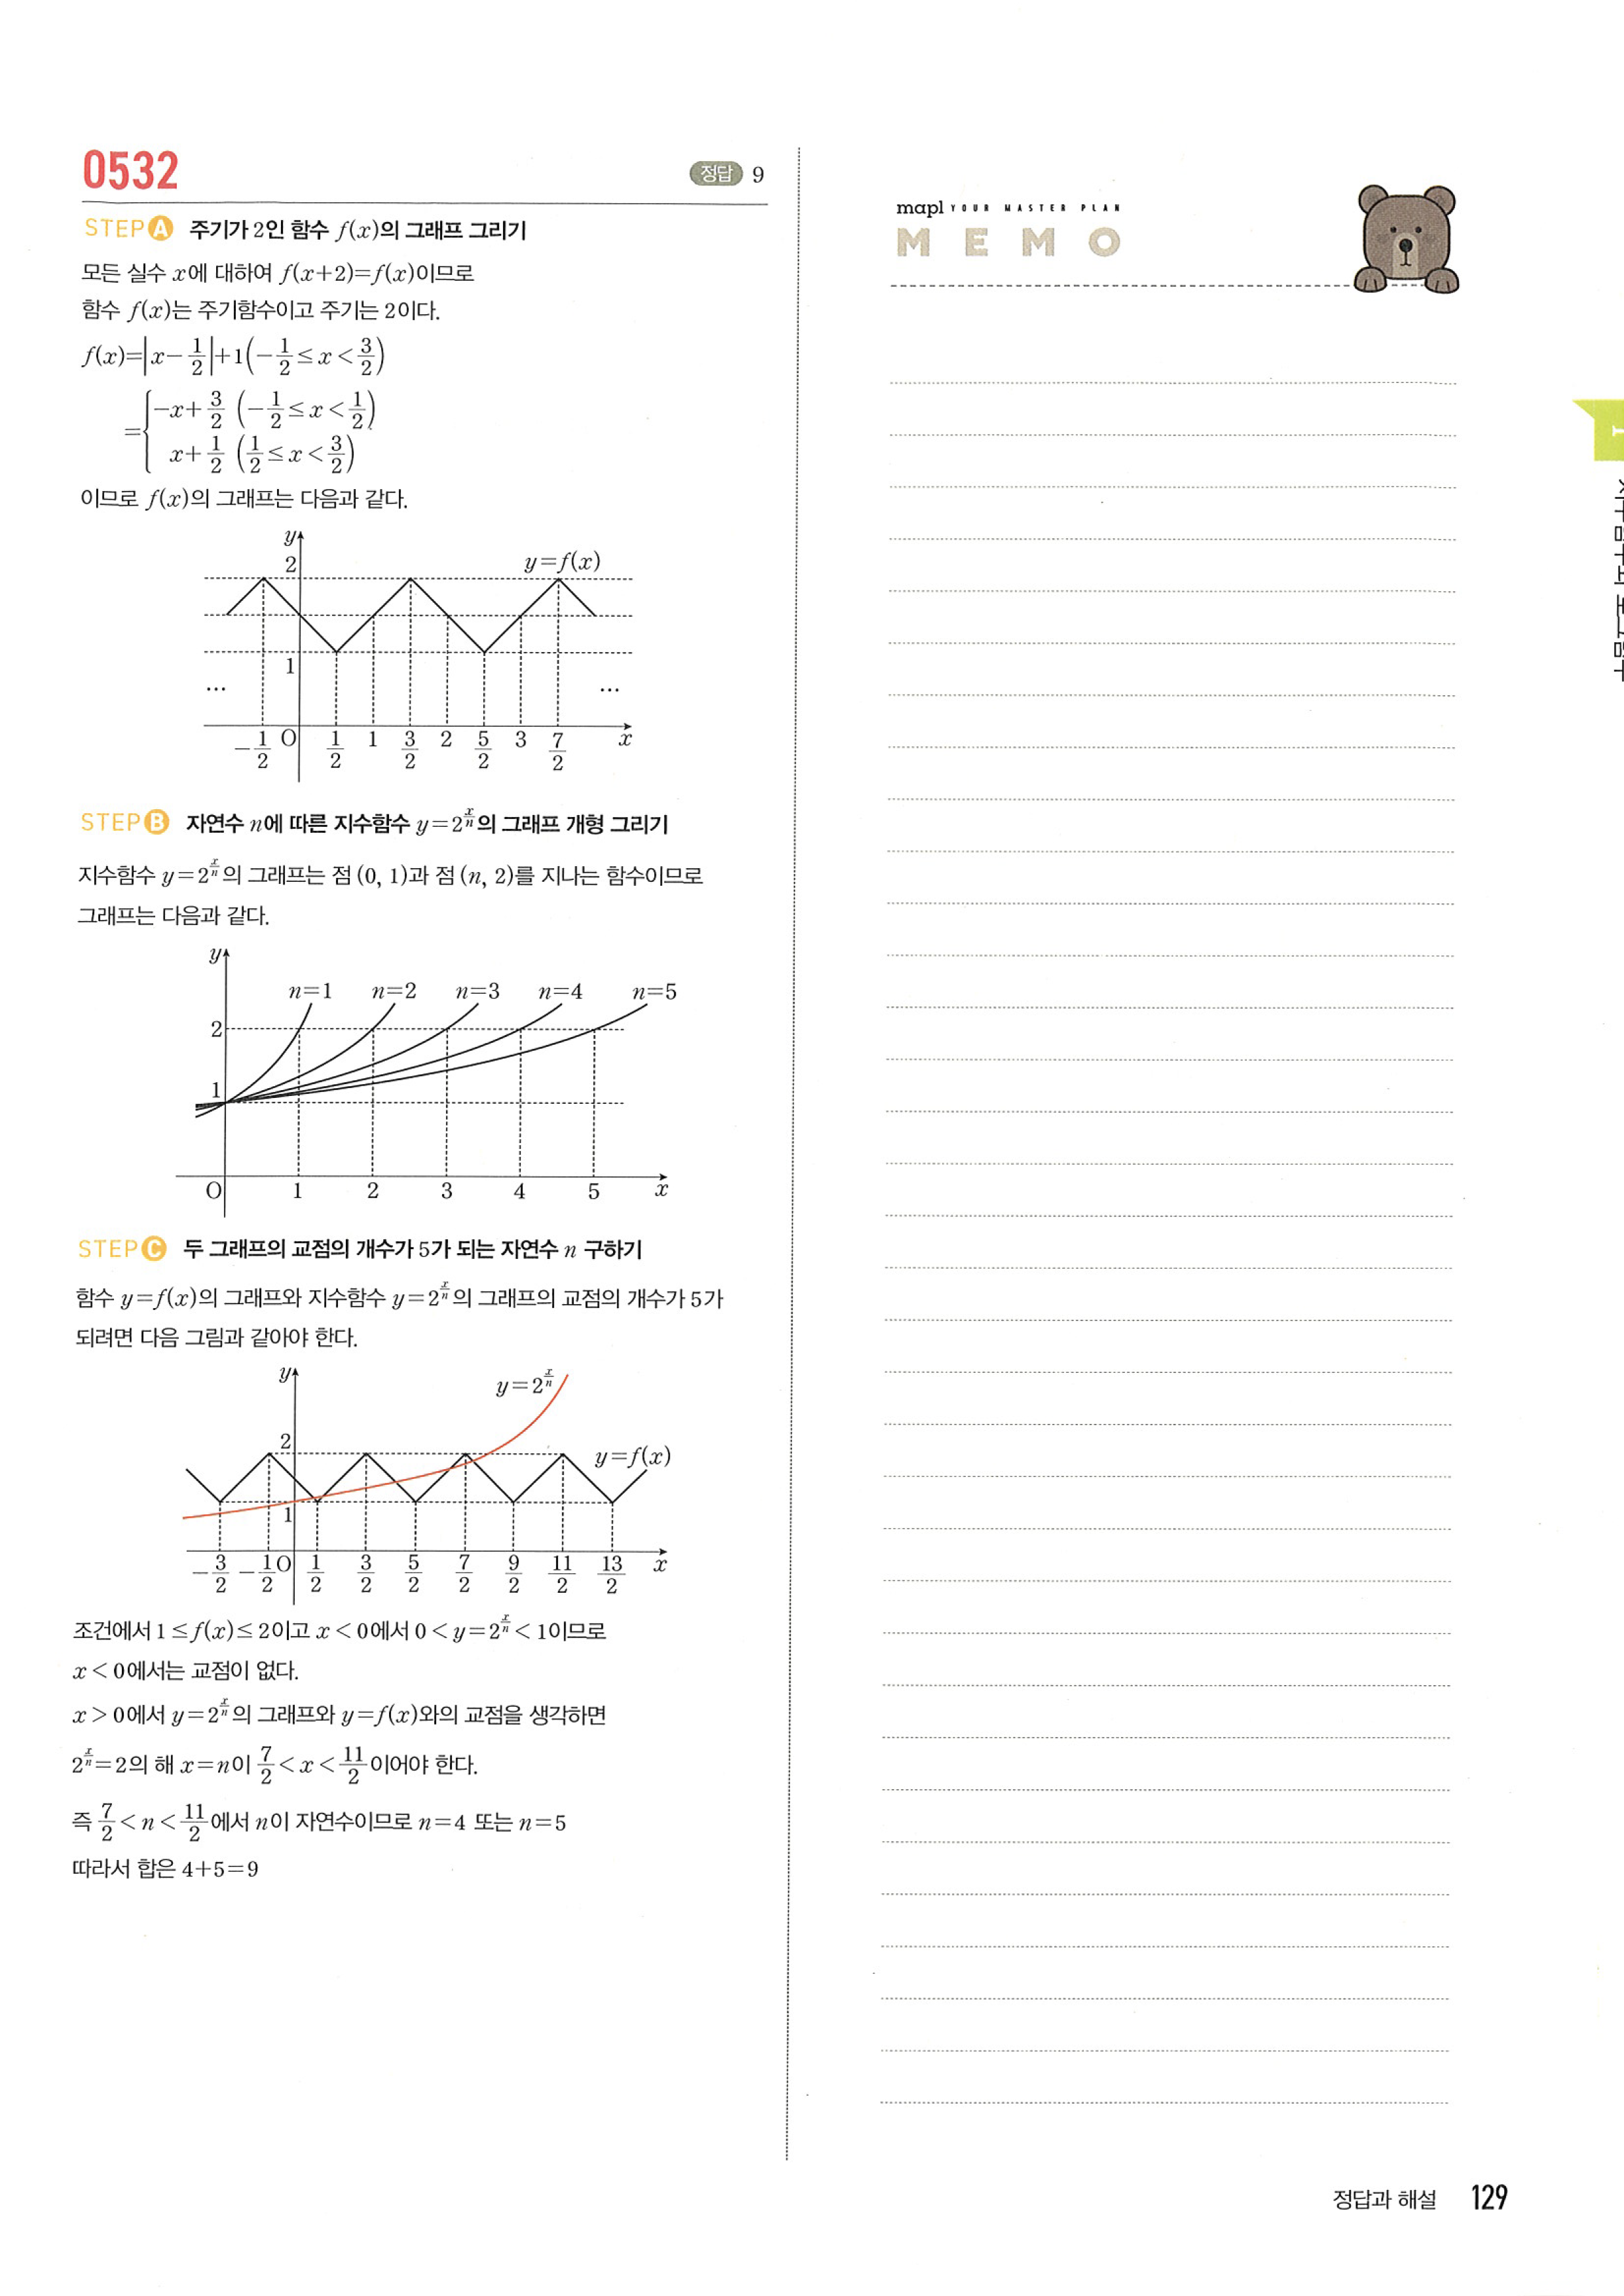 0532
정답 9
STEP A 주기가 2인 함수 f(x)의 그래프 그리기
모든 실수 x에 대하여 f(x+2)=f(x)이므로
함수 f(x)는 주기함수이고 주기는 2이다.
f(x)=|x-1/2|+1(-1/2≤x<3/2)
={-x+3/2 (-1/2≤x<1/2)
x+1/2 (1/2≤x<3/2)
이므로 f(x)의 그래프는 다음과 같다.
y
2
y=f(x)
1
… …
-1/2 O 1/2 1 3/2 2 5/2 3 7/2 x
STEP B 자연수 n에 따른 지수함수 y=2^(x/n)의 그래프 개형 그리기
지수함수 y=2^(x/n)의 그래프는 점 (0, 1)과 점 (n, 2)를 지나는 함수이므로
그래프는 다음과 같다.
y
n=1 n=2 n=3 n=4 n=5
2
1
O 1 2 3 4 5 x
STEP C 두 그래프의 교점의 개수가 5가 되는 자연수 n 구하기
함수 y=f(x)의 그래프와 지수함수 y=2^(x/n)의 그래프의 교점의 개수가 5가
되려면 다음 그림과 같아야 한다.
y
y=2^(x/n)
2
y=f(x)
1
-3/2 -1/2 O 1/2 3/2 5/2 7/2 9/2 11/2 13/2 x
조건에서 1≤f(x)≤2이고 x<0에서 0<y=2^(x/n)<1이므로
x<0에서는 교점이 없다.
x>0에서 y=2^(x/n)의 그래프와 y=f(x)와의 교점을 생각하면
2^(x/n)=2의 해 x=n이 7/2<x<11/2이어야 한다.
즉 7/2<n<11/2에서 n이 자연수이므로 n=4 또는 n=5
따라서 합은 4+5=9
mapl YOUR MASTER PLAN
MEMO
정답과 해설 129